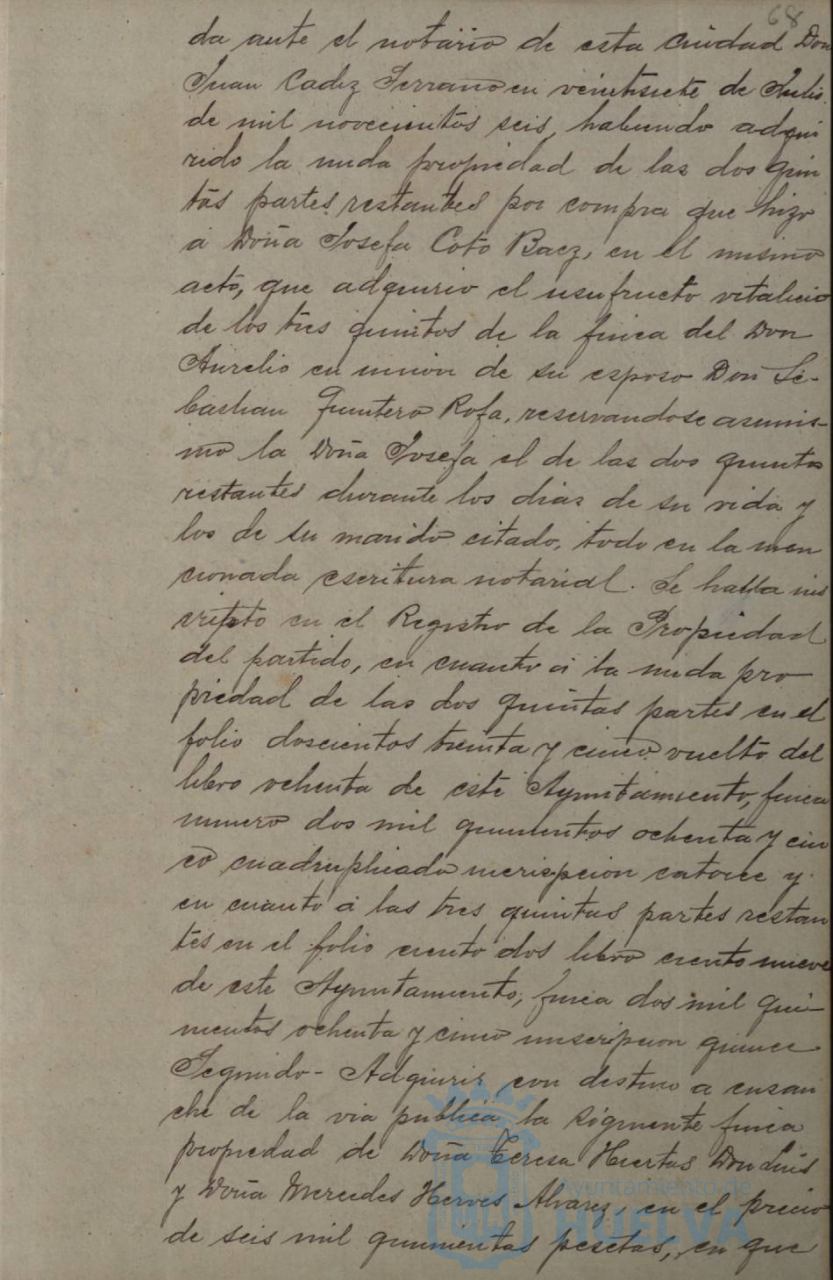 68
da ante el notario de esta ciudad Don
Juan Cadiz Serrano en veintisiete de Julio
de mil novecientos seis, habiendo adqui
rido la nuda propiedad de las dos quin
tas partes restantes por compra que hizo
a Doña Josefa Coto Baez, en el mismo
acto, que adquirio el usufructo vitalicio
de los tres quintos de la finca del Don
Aurelio en union de su esposo Don Se-
bastian Quintero Rofa, reservandose asimis-
mo la Doña Josefa el de las dos quintas
restantes durante los dias de su vida y
los de su marido citado, todo en la men
cionada escritura notarial. Se halla ins
cripto en el Registro de la Propiedad
del partido, en cuanto á la nuda pro
piedad de las dos quintas partes en el
folio doscientos treinta y cinco vuelto del
libro ochenta de este Ayuntamiento, finca
numero dos mil quinientos ochenta y cin
co cuadruplicado inscripcion catorce y
en cuanto á las tres quintas partes restan
tes en el folio ciento dos libro ciento nueve
de este Ayuntamiento, finca dos mil qui-
nientos ochenta y cinco inscripcion quince
Segundo - Adquirir con destino a ensan
che de la via publica la siguiente finca
propiedad de Doña Teresa Huertas Don Luis
y Doña Mercedes Herves Alvarez, en el precio
de seis mil quinientas pesetas, en que
Ayuntamiento de
HUELVA